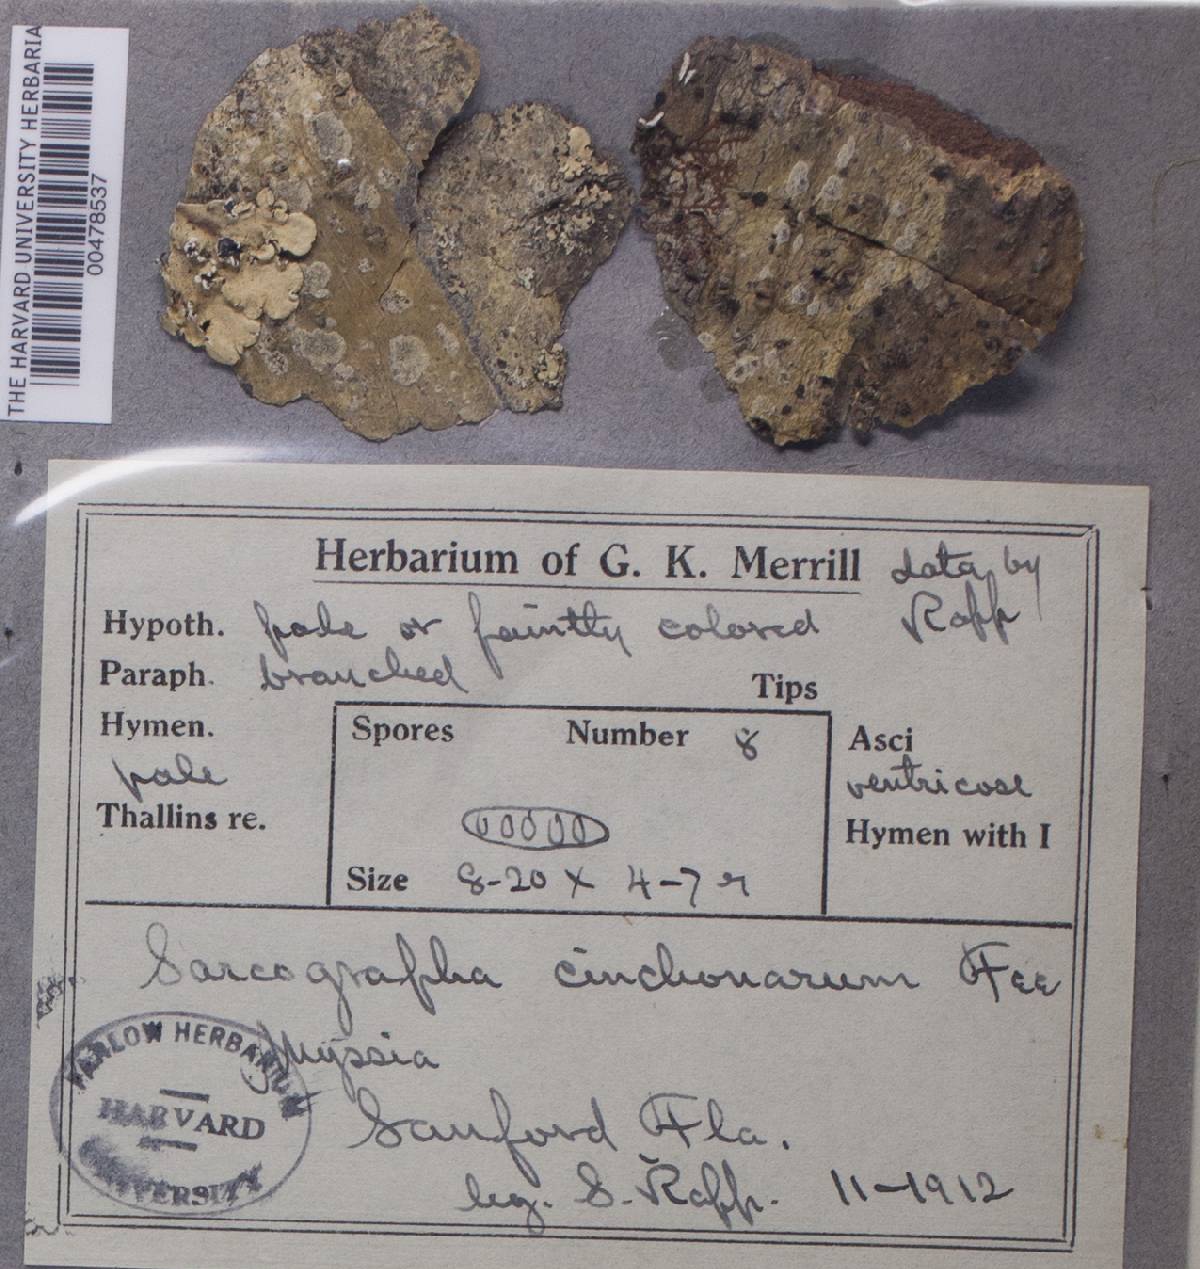 THE HARVARD UNIVERSITY HERBARIA
00478537
Herbarium of G. K. Merrill data by Rapp
Hypoth. pale or faintly colored
Paraph. branched Tips
Hymen. pale
Thallins re.
Spores Number 8
Size 8-20 x 4-7
Asci ventricose
Hymen with I
Sarcographa cinchonarum Fee
Sanford Fla.
leg. S. Rapp. 11-1912
FARLOW HERBARIUM
HARVARD
UNIVERSITY